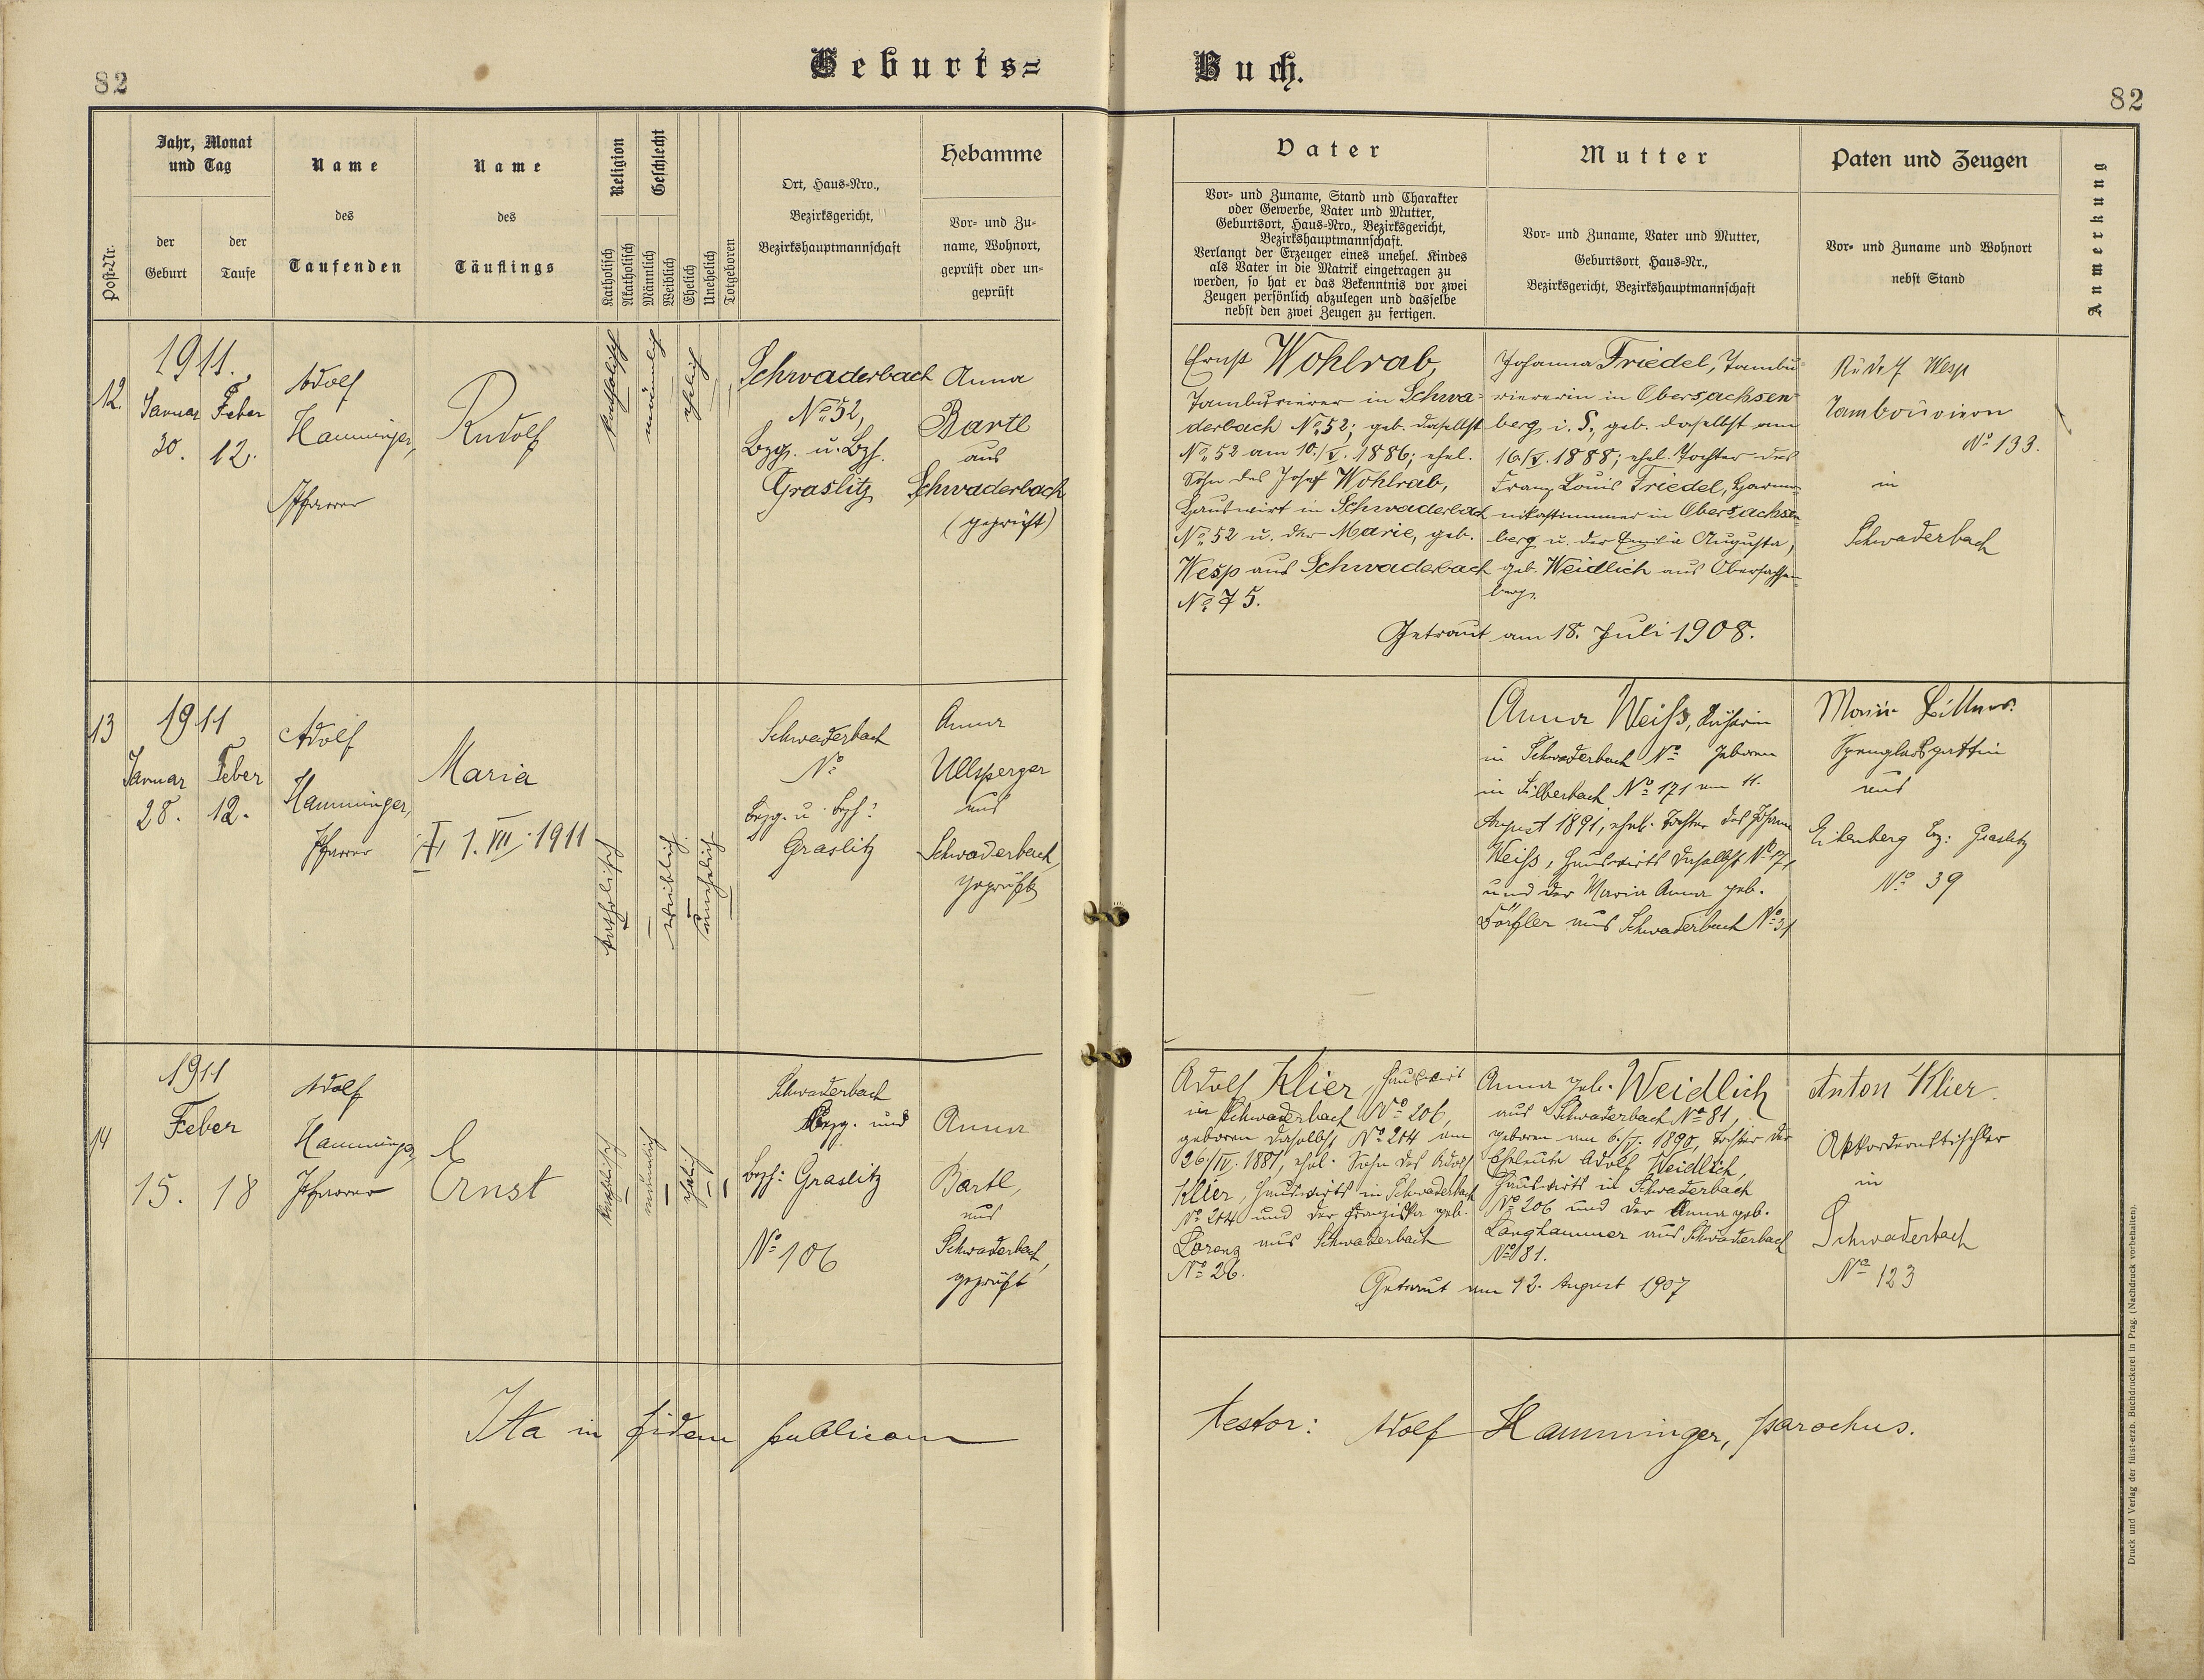 82
Geburts=
Buch.
82
Post-Nr.
Jahr, Monat
und Tag
der
Geburt
der
Taufe
Name
des
Taufenden
Name
des
Täuflings
Religion
Katholisch
Akatholisch
Geschlecht
Männlich
Weiblich
Ehelich
Unehelich
Totgeboren
Ort, Haus-Nro.,
Bezirksgericht,
Bezirkshauptmannschaft
Hebamme
Vor- und Zu-
name, Wohnort,
geprüft oder un-
geprüft
Vater
Vor- und Zuname, Stand und Charakter
oder Gewerbe, Vater und Mutter,
Geburtsort, Haus-Nro., Bezirksgericht,
Bezirkshauptmannschaft.
Verlangt der Erzeuger eines unehel. Kindes
als Vater in die Matrik eingetragen zu
werden, so hat er das Bekenntnis vor zwei
Zeugen persönlich abzulegen und dasselbe
nebst den zwei Zeugen zu fertigen.
Mutter
Vor- und Zuname, Vater und Mutter,
Geburtsort, Haus-Nr.,
Bezirksgericht, Bezirkshauptmannschaft
Paten und Zeugen
Vor- und Zuname und Wohnort
nebst Stand
Anmerkung
12.
1911.
Januar
30.
Feber
12.
Adolf
Hamminger,
Pfarrer
Rudolf
katholisch
männlich
ehelich
Schwaderbach
No 52,
Bzg. u. Bzh.
Graslitz
Anna
Bartl
aus
Schwaderbach
(geprüft)
Ernst Wohlrab,
Tamburierer in Schwa-
derbach No 52; geb. daselbst
No 52 am 10./V. 1886; ehel.
Sohn des Josef Wohlrab,
Hauswirt in Schwaderbach
No 52 u. der Marie, geb.
Wesp aus Schwaderbach
No 75.
Johanna Friedel, Tambu-
riererin in Obersachsen-
berg i. S., geb. daselbst am
16./V. 1888; ehel. Tochter des
Franz Louis Friedel, Harmo-
nikastimmer in Obersachsen-
berg u. der Emilia Augusta,
geb. Weidlich aus Obersachsen-
berg.
Getraut am 18. Juli 1908.
Rudolf Wesp
No 133.
in
Schwaderbach
13
1911
Januar
28.
Feber
12.
Adolf
Hamminger,
Pfarrer
Maria
† 1. VII. 1911
katholisch
weiblich
unehelich
Schwaderbach
No
Bzg. u. Bzh:
Graslitz
Anna
Ullsperger
aus
Schwaderbach,
geprüft
Anna Weiß,
in Schwaderbach No geboren
in Silberbach No 171 am 11.
August 1891, ehel. Tochter des Johann
Weiß, Hauswirts daselbst No 171
und der Maria Anna geb.
Dörfler aus Schwaderbach No 31
Spenglersgattin
aus
Eibenberg Bz: Graslitz
No 39
14
1911
Feber
15.
18
Adolf
Hamminger,
Pfarrer
E
Ernst
katholisch
männlich
ehelich
Schwaderbach
Bzg. und
Bzh: Graslitz
No 106
Anna
Bartl,
aus
Schwaderbach,
geprüft
Adolf Klier, Hauswirt
in Schwaderbach No 206,
geboren daselbst No 204 am
26./IV. 1881, ehel. Sohn des Adolf
Klier, Hauswirts in Schwaderbach
No 204 und der Franziska geb.
Lorenz aus Schwaderbach
No 26.
Anna geb. Weidlich
aus Schwaderbach No 81,
geboren am 6./V. 1890, Tochter der
Eheleute Adolf Weidlich,
Hauswirts in Schwaderbach
No 206 und der Anna geb.
Langhammer aus Schwaderbach
No 81.
Getraut am 12. August 1907
Anton Klier.
Akkordeontischler
in
Schwaderbach
No 123
Ita in fidem publicam
testor: Adolf Hamminger, parochus.
Druck und Verlag der fürst-erzb. Buchdruckerei in Prag. (Nachdruck vorbehalten).